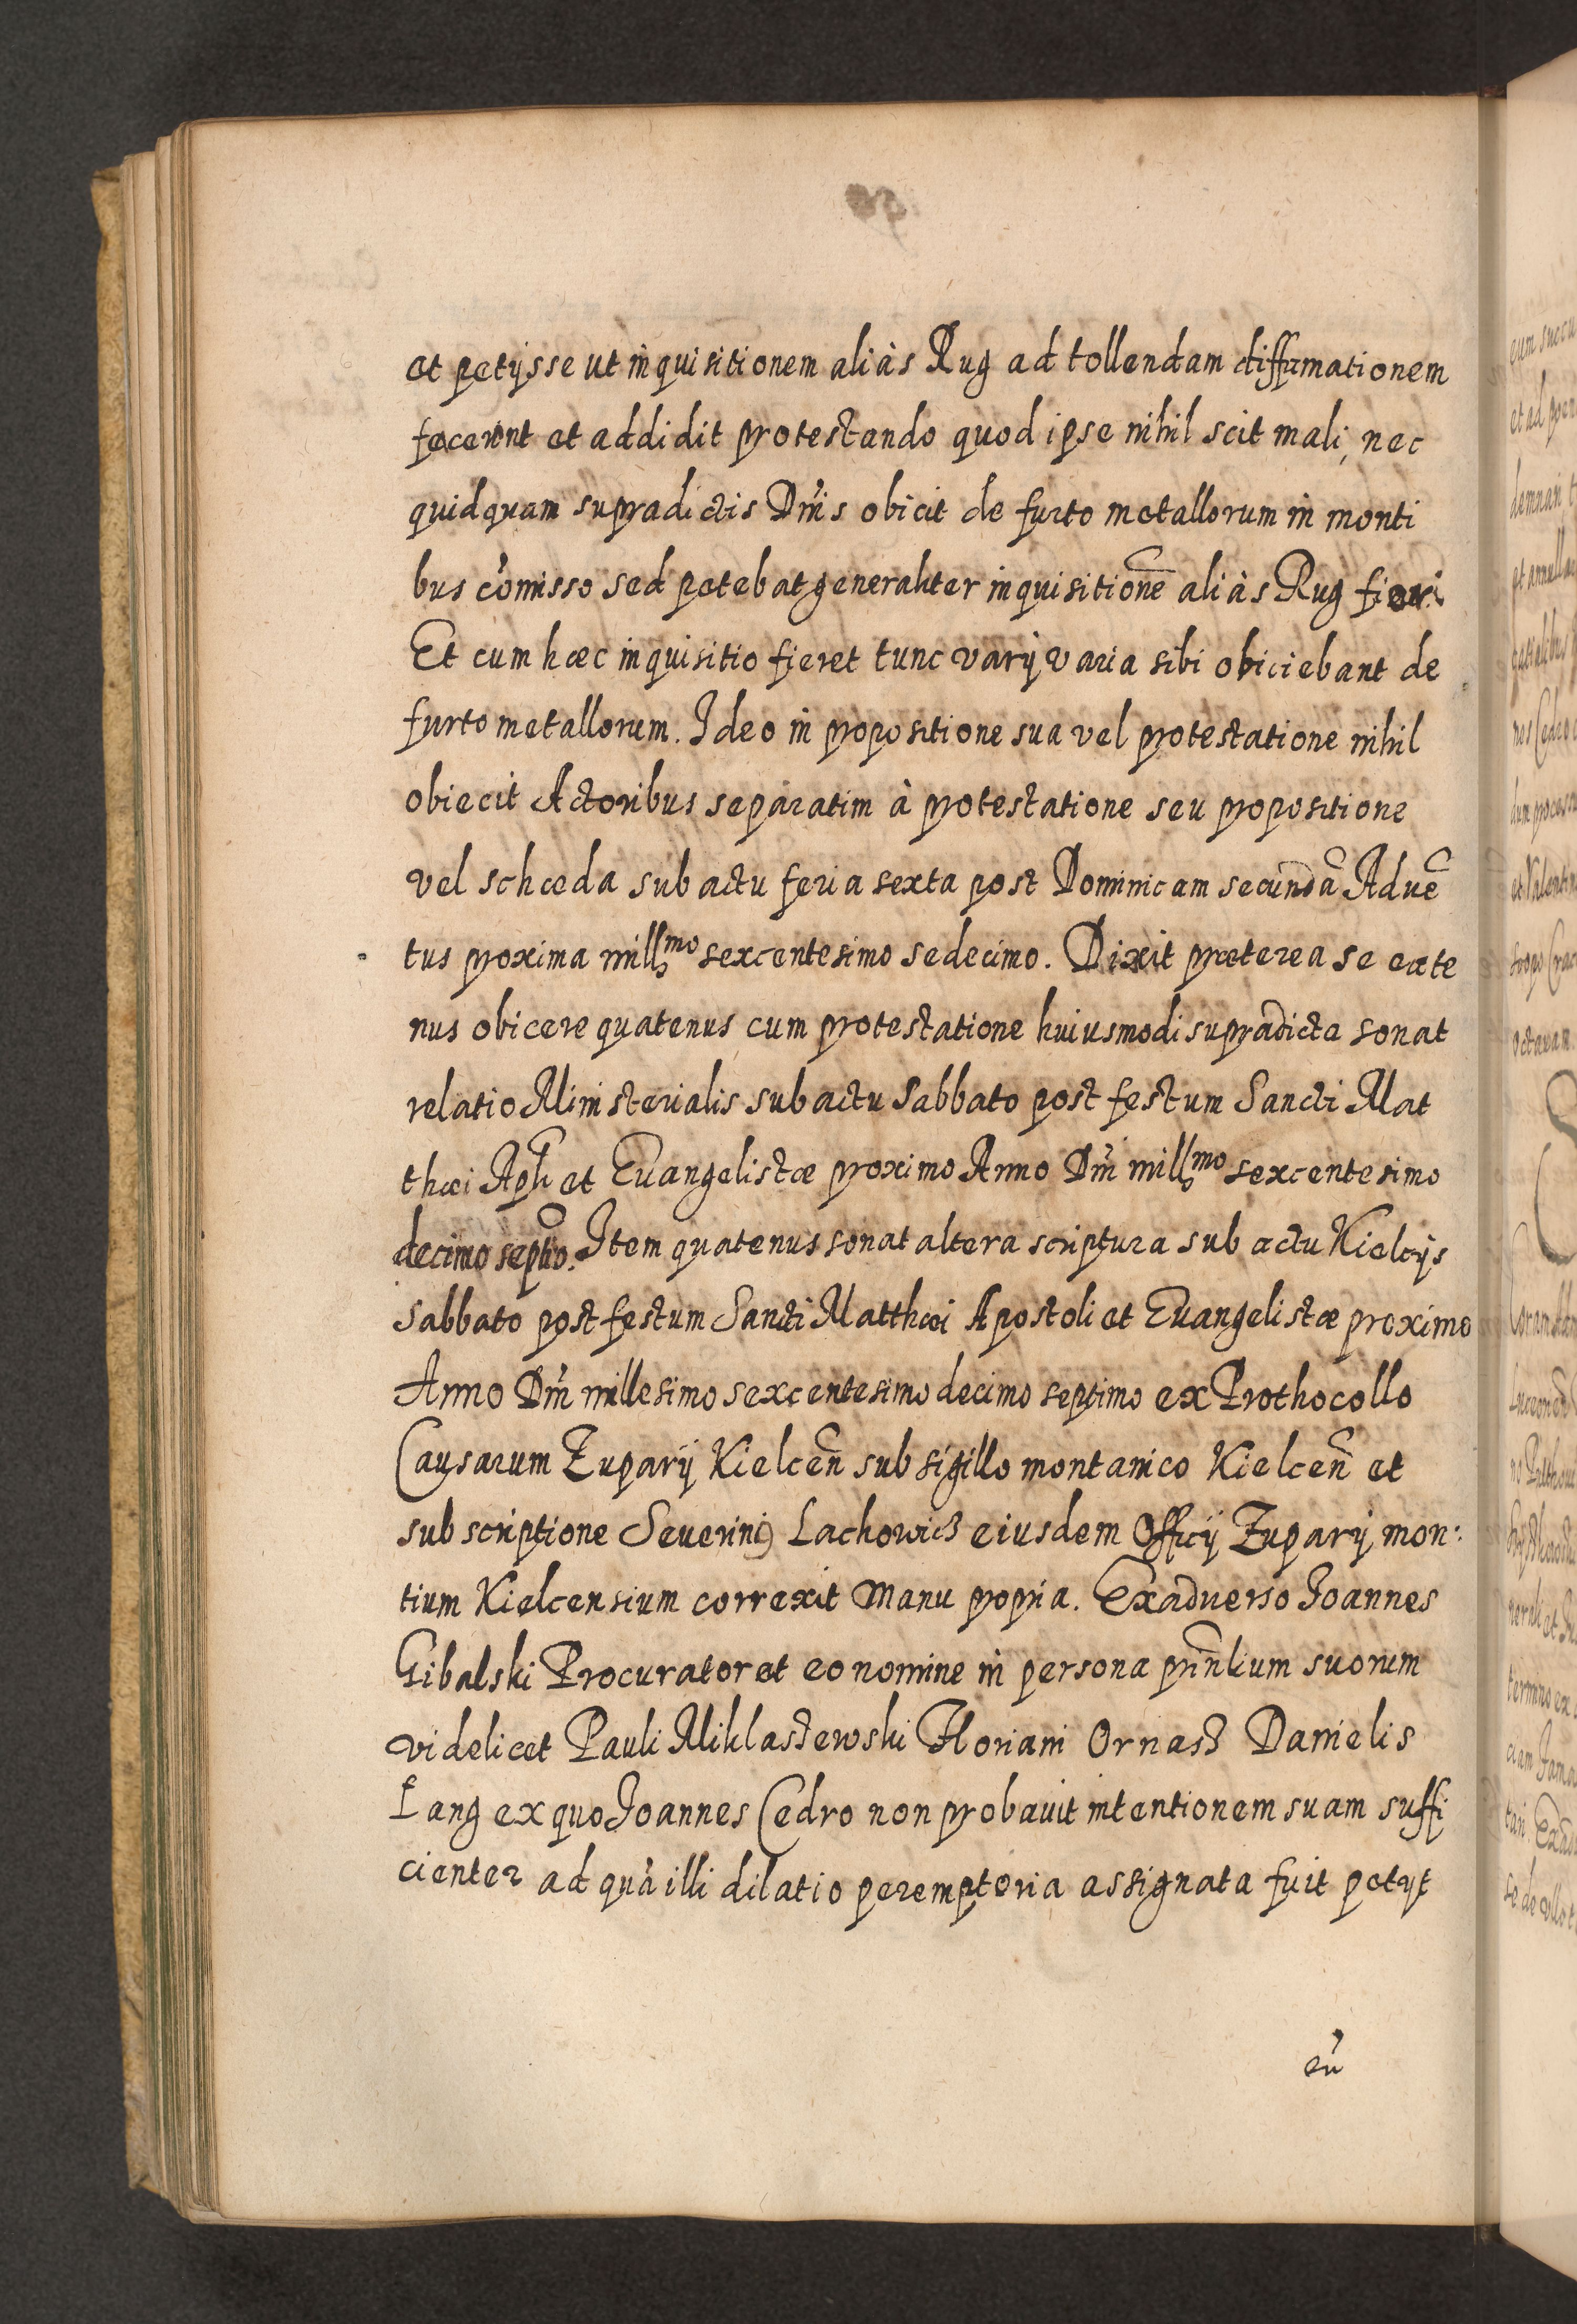 et petijsse ut inquisitionem aliàs Rug ad tollendam diffamationem
facerent et addidit protestando quod ipse nihil scit mali, nec
quidquam supradictis Dńis obicit de furto metallorum in monti
bus cómisso sed petebat generaliter inquisitionẽ aliàs Rug fieri
Et cum hæc inquisitio fieret tunc varij varia sibi obiciebant de
furto metallorum. Ideo in propositione sua vel protestatione nihil
obiecit Actoribus separatim à protestatione seu propositione
vel schœda sub actu feria sexta post Dominicam secundã Aduẽ
tus proxima millmo sexcentesimo sedecimo. Dixit præterea se eate
nus obicere quatenus cum protestatione huiusmodi supradicta sonat
relatio Ministerialis sub actu Sabbato post festum Sancti Mat
thæi Apłi et Euangelistæ proximo Anno Dńi millmo sexcentesimo
decimo septio. Item quatenus sonat altera scriptura sub actu Kielcijs
Sabbato post festum Sancti Matthæi Apostoli et Euangelistæ proximo
Anno Dńi millesimo sexcentesimo decimo septimo ex Prothocollo
Causarum Zuparij Kielceñ sub sigillo montanico Kielceñ et
subscriptione Seuerini Lachowicz eiusdem Officij Zuparij mon:
tium Kielcensium correxit manu propria. Exaduerso Joannes
Gibalski Procurator et eo nomine in persona prinlium suorum
videlicet Pauli Miklaszewski Floriani Ornasz Danielis
Lang ex quo Joannes Cedro non probauit intentionem suam suffi
cienter ad quá illi dilatio peremptoria assignata fuit petyt
eú